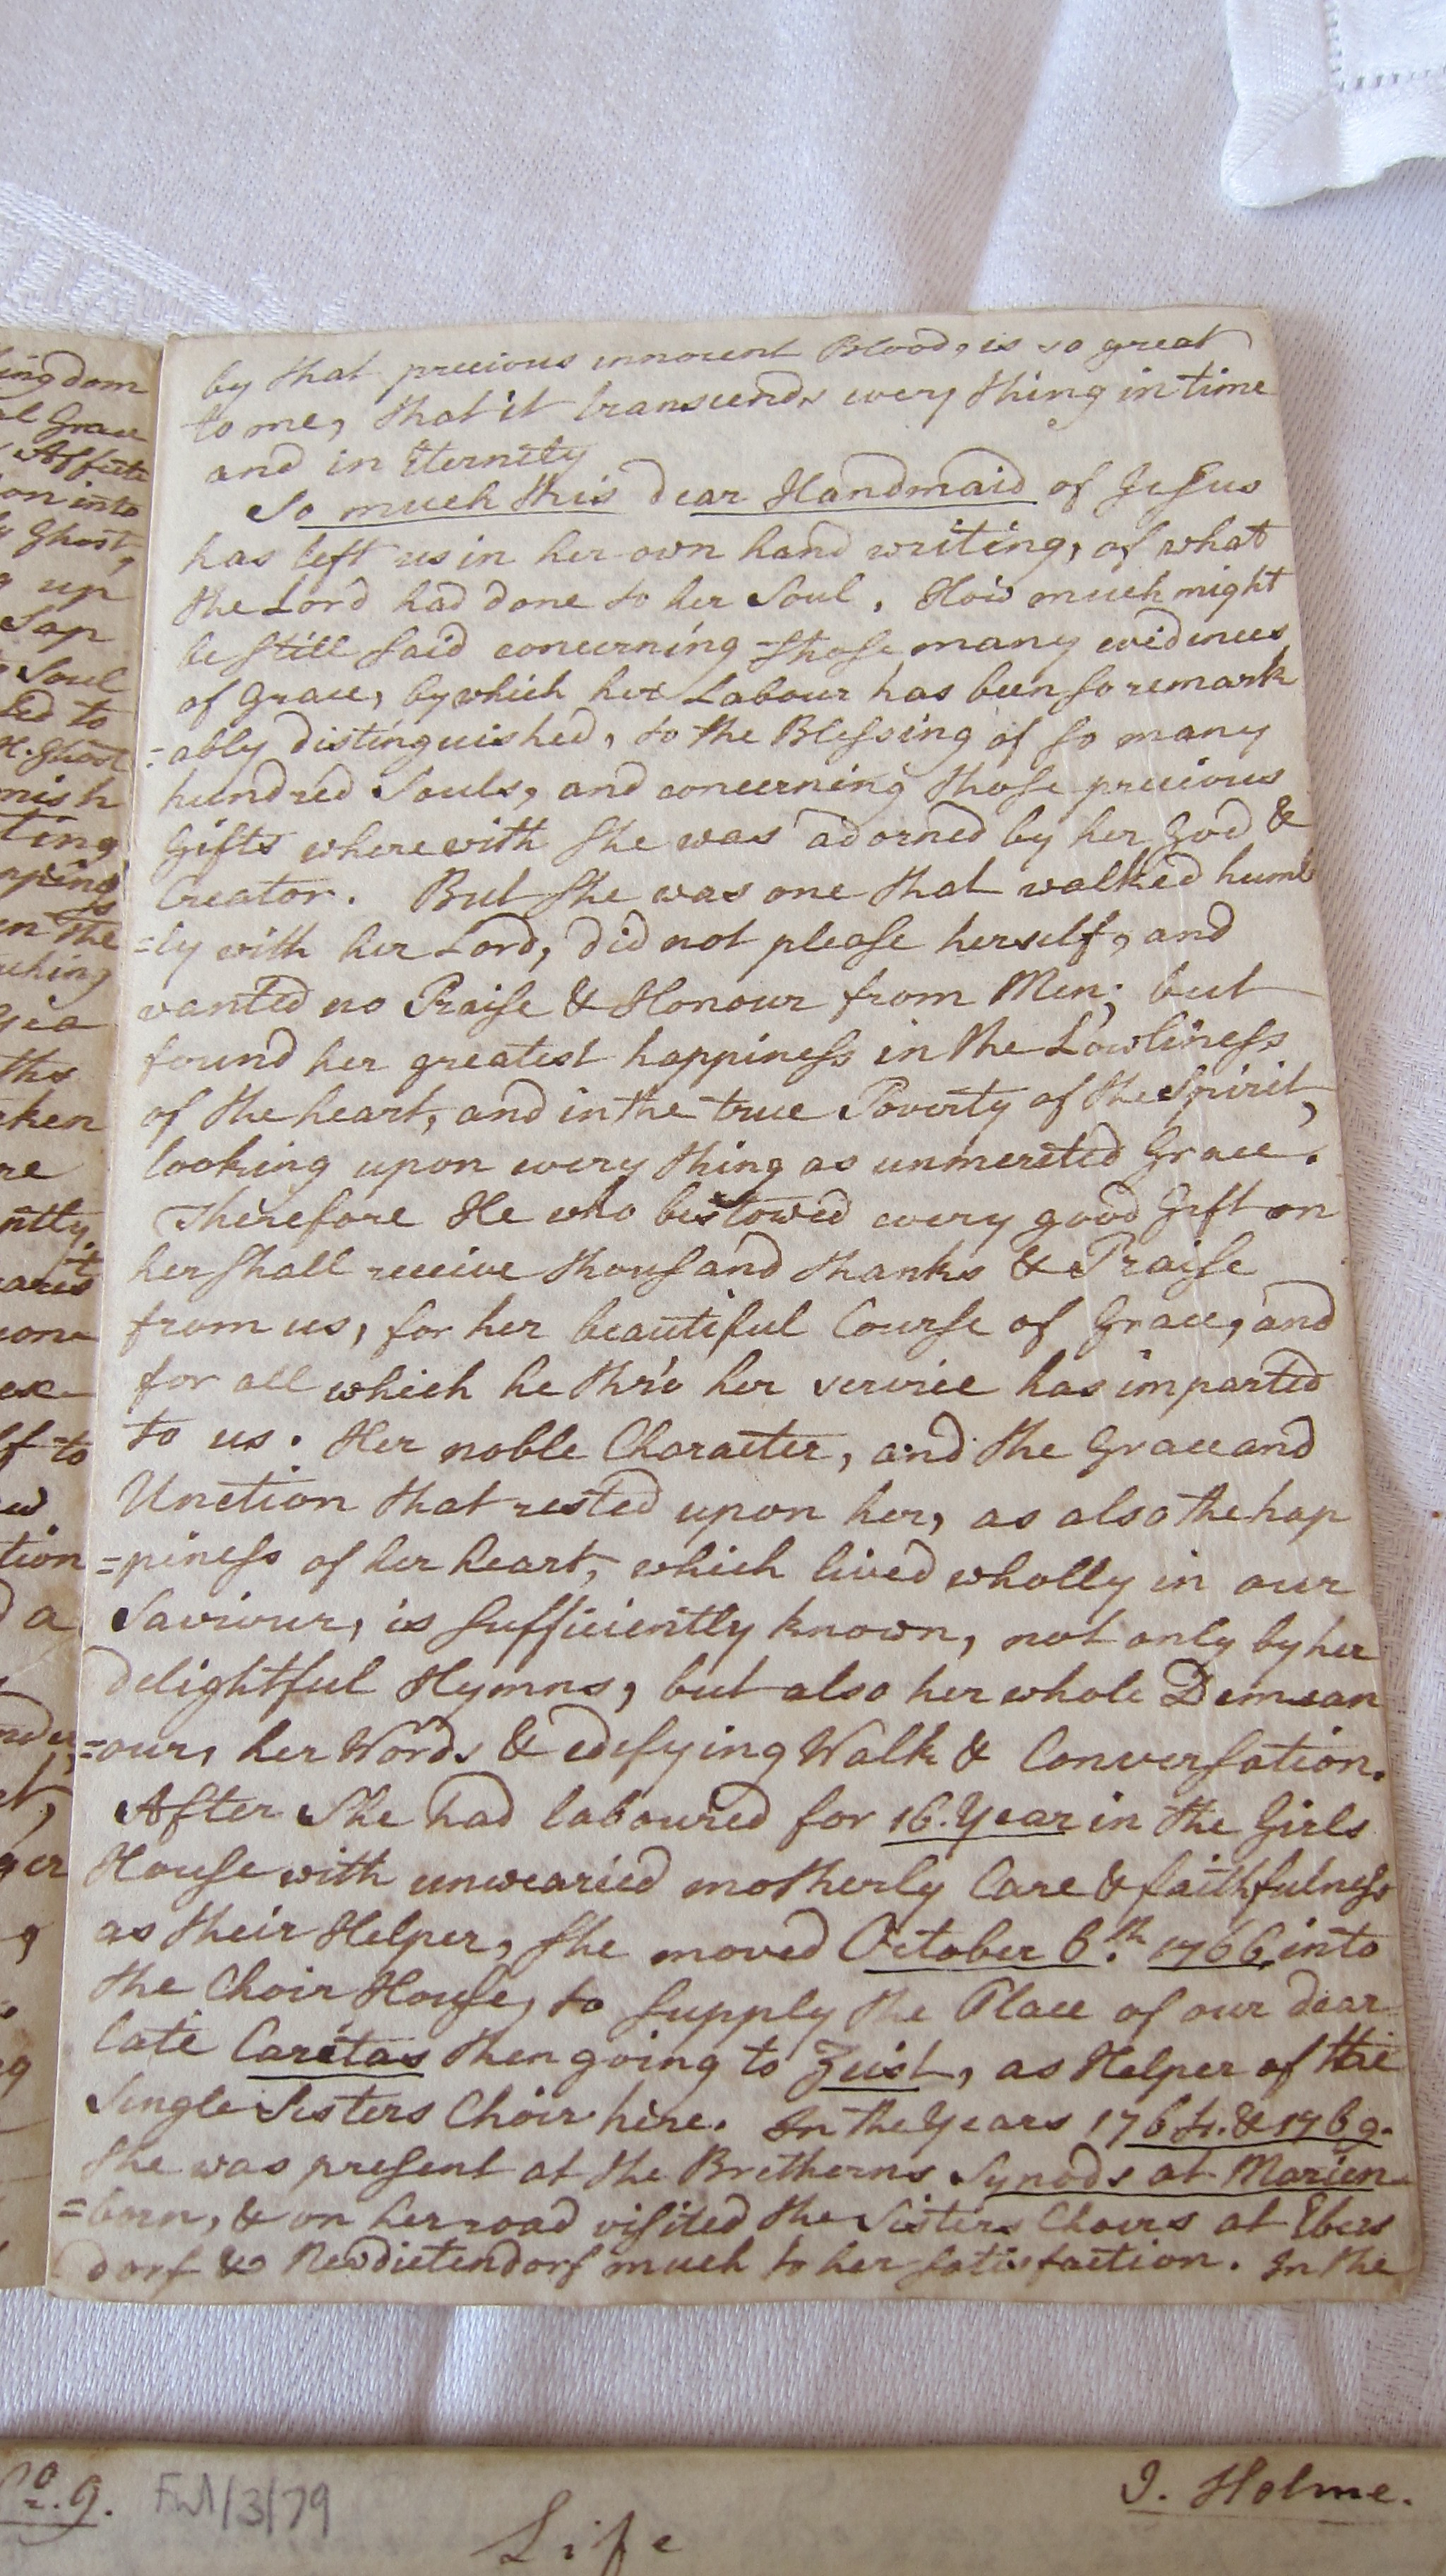 ingdom
al Grace
Affecti
on into
Ghost,
up
Sap
Soul
led to
H. Ghost
nish
ting
pping
in The
uching
ths
ken
re
ntly
ares
ion
lf to
ed
tion
a
ger
by that precious innocent Blood, is so great
to me, that it transcends every thing in time
and in Eternity
So much this dear Handmaid of Jeſus
has left us in her own hand writing, of what
the Lord had done to her Soul. How much might
be ſtill ſaid concerning thoſe many evidences
of Grace, by which her Labour has been ſo remark
=ably distinguished, to the Bleſsing of ſo many
hundred Souls, and concerning thoſe precious
Gifts where with ſhe was adorned by her God &
Creator. But ſhe was one that walked humb
=ly with her Lord, did not pleaſe herself, and
wanted no Praiſe & Honour from Men; but
found her greatest happineſs in the Lowlineſs
of the heart, and in the true Poverty of the Spirit,
looking upon every thing as unmereted Grace.
Therefore He who bestowed every good Gift on
her ſhall receive thouſand thanks & Praiſe
from us, for her beautiful Courſe of Grace, and
for all which he thro' her service has imparted
to us. Her noble Character, and the Grace and
Unction that rested upon her, as also the hap
=pineſs of her heart, which lived wholly in our
Saviour, is ſufficiently known, not only by her
delightful Hymns, but also her whole Demean
=our, her Words & edifying Walk & Converſation.
After She had laboured for 16. Year in the Girls
Houſe with unwearied motherly Care & faithfulneſs
as their Helper, ſhe moved October 6.th 1766. into
the Choir Houſe, to ſupply the Place of our dear
late Caritas then going to Zeist, as Helper of the
Single Sisters Choir here. In the Years 1764. & 1769.
ſhe was preſent at the Bretherns Synods at Marien
=born, & on her road viſited the Sisters Choirs at Ebers
dorf & Newdietendorf much to her ſatisfaction. In the
No. 9. FW/3/79 J. Holme.
Life